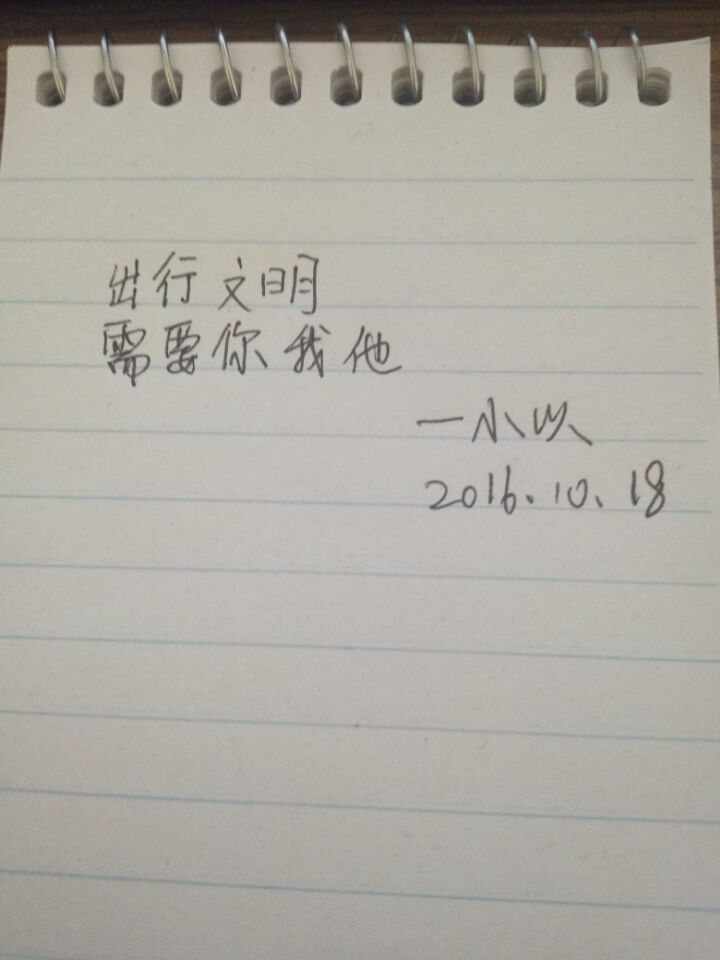 出行文明
需要你我他
一小以
2016.10.18